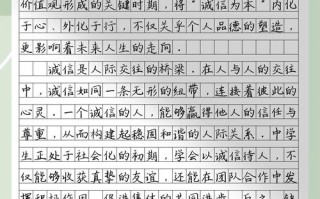 价值观形成的关键时期，将“诚信为本”内化
于心、外化于行，不仅关乎个人品德的塑造，
更影响着未来人生的走向。
诚信是人际交往的桥梁。在人与人的交往
中，诚信如同一条无形的纽带，连接着彼此的
心灵。一个诚信的人，能够赢得他人的信任与
尊重，从而构建起稳固和谐的人际关系。中学
生正处于社会化的初期，学会以诚信待人，不
仅能够收获真挚的友谊，还能在团队合作中发